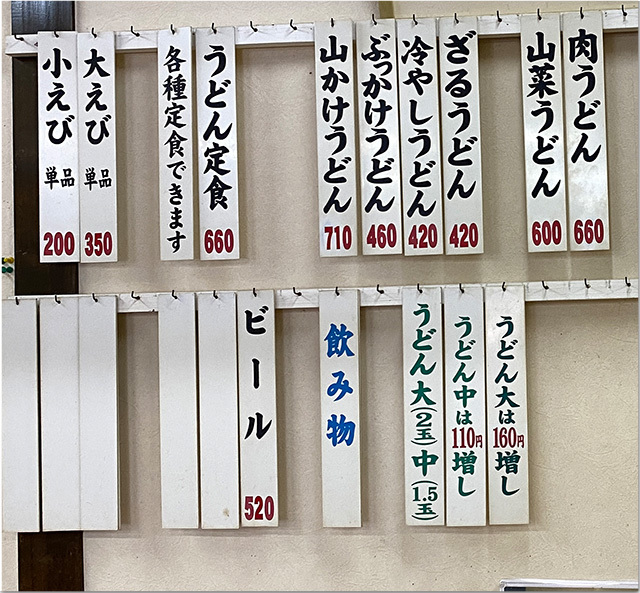 肉うどん 660
山菜うどん 600
ざるうどん 420
冷やしうどん 420
ぶっかけうどん 460
山かけうどん 710
うどん定食 660
各種定食できます
大えび 単品 350
小えび 単品 200
うどん大は160円増し
うどん中は110円増し
うどん大(2玉)中(1.5玉)
飲み物
ビール 520